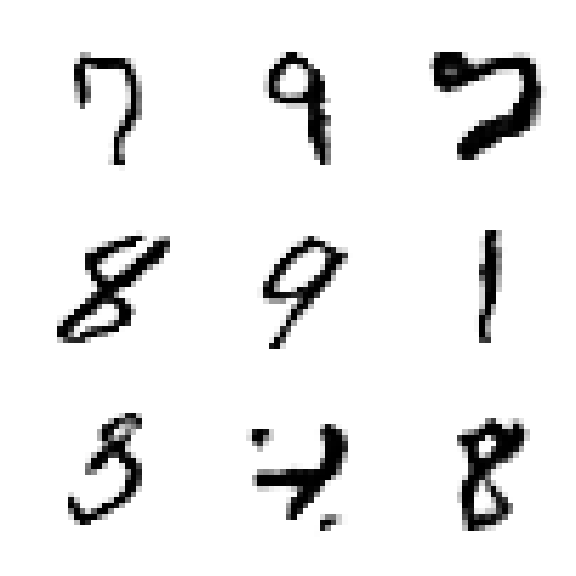 7 9 7
8 9 1
3 8